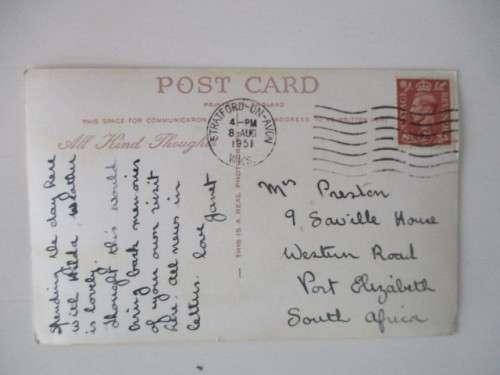 POST CARD
THIS SPACE FOR COMMUNICATION
ADDRESS
All Kind Thoughts
STRATFORD-UPON-AVON
4-PM
8 AUG
1951
THIS IS A REAL PHOTOGRAPH
Spending the day here
with Hilda. Weather
is lovely.
Thought this would
bring back memories
of your own visit
here. All news in
letter. Love Janet
Mrs Preston
9 Saville House
Western Road
Port Elizabeth
South Africa